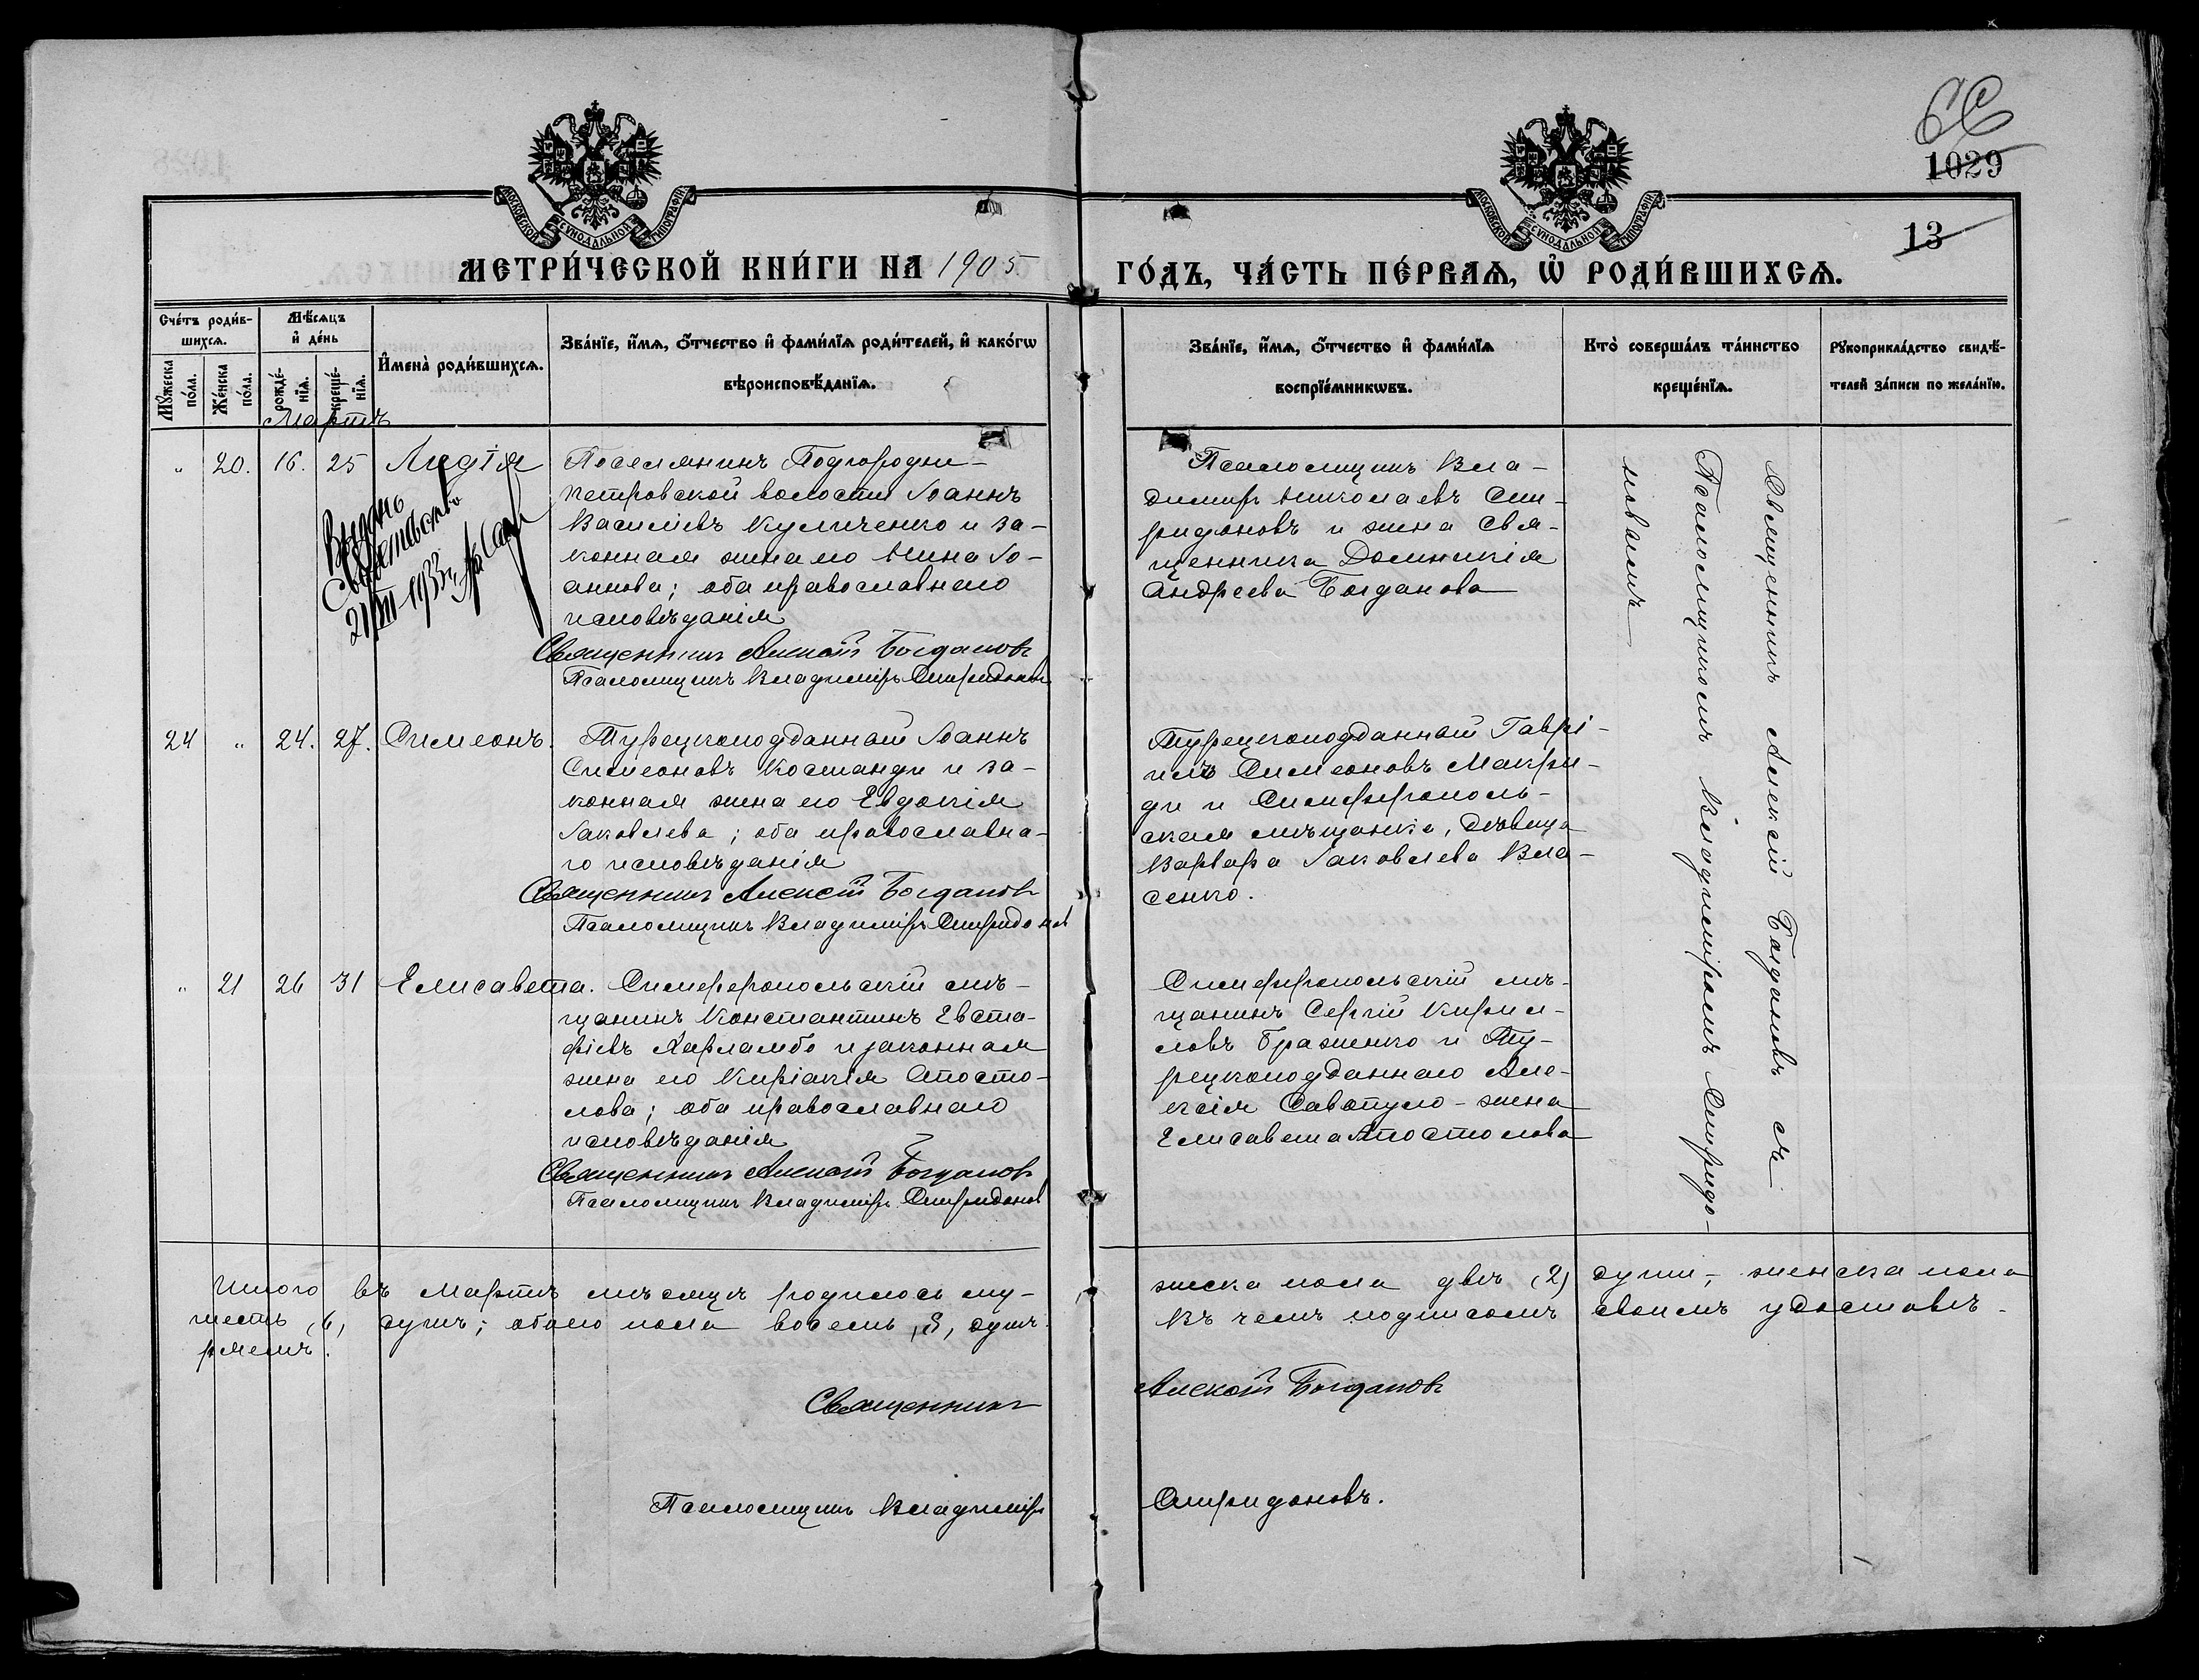 6
1029
13
МОСКОВСКОЙ СѴНОДАЛЬНОЙ ТИПОГРАФІИ
МОСКОВСКОЙ СѴНОДАЛЬНОЙ ТИПОГРАФІИ
МЕТРИ́ЧЕСКОЙ КНИ́ГИ НА 1905
ГО́ДЪ, ЧА́СТЬ ПЕ́РВАѦ, Ѡ҆ РОДИ́ВШИХСѦ.
Сче́тъ роди́в-
шихсѧ.
Мꙋ́жеска
по́ла.
Же́нска
по́ла.
Мѣ́сѧцъ
и҆ де́нь
рожде́-
нїѧ.
креще́-
нїѧ.
И҆мена̀ роди́вшихсѧ.
Зва́нїе, и҆́мѧ, ѻ҆́тчество и҆ фами́лїѧ роди́телей, и҆ како́гѡ
вѣроисповѣ́данїѧ.
Зва́нїе, и҆́мѧ, ѻ҆́тчество и҆ фами́лїѧ
воспрїе́мникѡвъ.
Кто̀ соверша́лъ та́инство
креще́нїѧ.
Рꙋкоприкла́дство свидѣ́-
телей за́писи по жела́нїю.
Мартъ
" 20. 16. 25 Лидія
Выдано
Свидетельство
21/VII 1933 г.
Поселянинъ Подгородне-
петровской волости Іоаннъ
Василіевъ Куличенко и за-
конная жена его Нина Іо-
аннова; оба православнаго
исповѣданія
Священникъ Алексій Богдановъ
Псаломщикъ Владиміръ Спиридоновъ
Псаломщикъ Вла-
диміръ Николаевъ Спи-
ридоновъ и жена Свя-
щенника Домникія
Андреева Богданова
24 " 24. 27. Симеонъ.
Турецкоподданный Іоаннъ
Симеоновъ Костанди и за-
конная жена его Евдокія
Іаковлева; оба православна-
го исповѣданія
Священникъ Алексій Богдановъ
Псаломщикъ Владиміръ Спиридоновъ
Турецкоподданный Гаврі-
илъ Симеоновъ Макри-
ди и Симферополь-
ская мѣщанка, дѣвица
Варвара Іаковлева Вла-
сенко.
" 21 26 31 Елисавета.
Симферопольскій мѣ-
щанинъ Константинъ Евста-
фіевъ Харламбо и законная
жена его Киріакія Апосто-
лова; оба православнаго
исповѣданія
Священникъ Алексій Богдановъ
Псаломщикъ Владиміръ Спиридоновъ
Симферопольскій мѣ-
щанинъ Сергій Кирил-
ловъ Браженко и Ту-
рецкоподданнаго Але-
ксія Савопуло - жена
Елисавета Апостолова
Священникъ Алексій Богдановъ съ
Псаломщикомъ Владиміромъ Спиридо-
новымъ
Итого въ Мартѣ мѣсяцѣ родилось му-
жеска пола двѣ (2) души, женска пола
шесть (6) душъ; обоего пола восемь (8) душъ.
Въ чемъ подписомъ своимъ удостовѣ-
ряемъ.
Священникъ
Алексій Богдановъ
Псаломщикъ Владиміръ
Спиридоновъ.